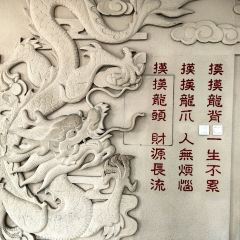 摸摸龍背 一生不累
摸摸龍爪 人無煩惱
摸摸龍頭 財源長流